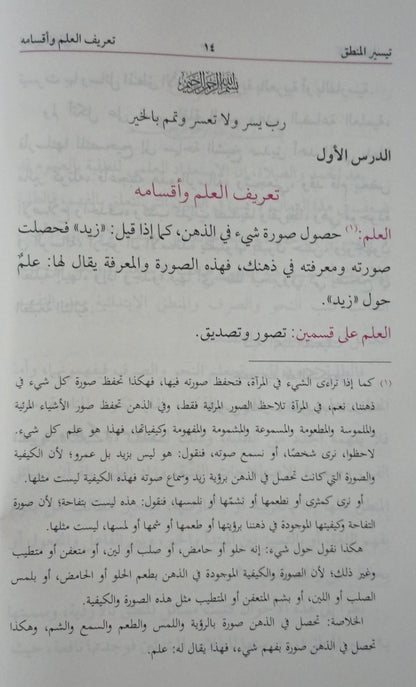 تيسير المنطق ١٤ تعريف العلم وأقسامه
بسم الله الرحمن الرحيم
رب يسر ولا تعسر وتمم بالخير
الدرس الأول
تعريف العلم وأقسامه
العلم:(١) حصول صورة شيء في الذهن، كما إذا قيل: «زيد» فحصلت
صورته ومعرفته في ذهنك، فهذه الصورة والمعرفة يقال لها: علمٌ
حول «زيد».
العلم على قسمين: تصور وتصديق.
(١) كما إذا تراءى الشيء في المرآة، فتحفظ صورته فيها، فهكذا تحفظ صورة كل شيء في
ذهننا، نعم، في المرآة تلاحظ الصور المرئية فقط، وفي الذهن تحفظ صور الأشياء المرئية
والملموسة والمطعومة والمسموعة والمشمومة والمفهومة وكيفياتها، فهذا هو علم كل شيء.
لاحظوا، نرى شخصًا، أو نسمع صوته، فنقول: هو ليس بزيد بل عمرو؛ لأن الكيفية
والصورة التي كانت تحصل في الذهن برؤية زيد وسماع صوته فهذه الكيفية ليست مثلها.
أو نرى كمثرى أو نطعمها أو نشمّها أو نلمسها، فنقول: هذه ليست بتفاحة؛ لأن صورة
التفاحة وكيفيتها الموجودة في ذهننا برؤيتها أو طعمها أو شمها أو لمسها، ليست مثلها.
هكذا نقول حول شيء: إنه حلو أو حامض، أو صلب أو لين، أو متعفن أو متطيب
وغير ذلك؛ لأن الصورة والكيفية الموجودة في الذهن بطعم الحلو أو الحامض، أو بلمس
الصلب أو اللين، أو بشم المتعفن أو المتطيب مثل هذه الصورة والكيفية.
الخلاصة: تحصل في الذهن صورة بالرؤية واللمس والطعم والسمع والشم، وهكذا
تحصل في الذهن صورة بفهم شيء، فهذا يقال له: علم.